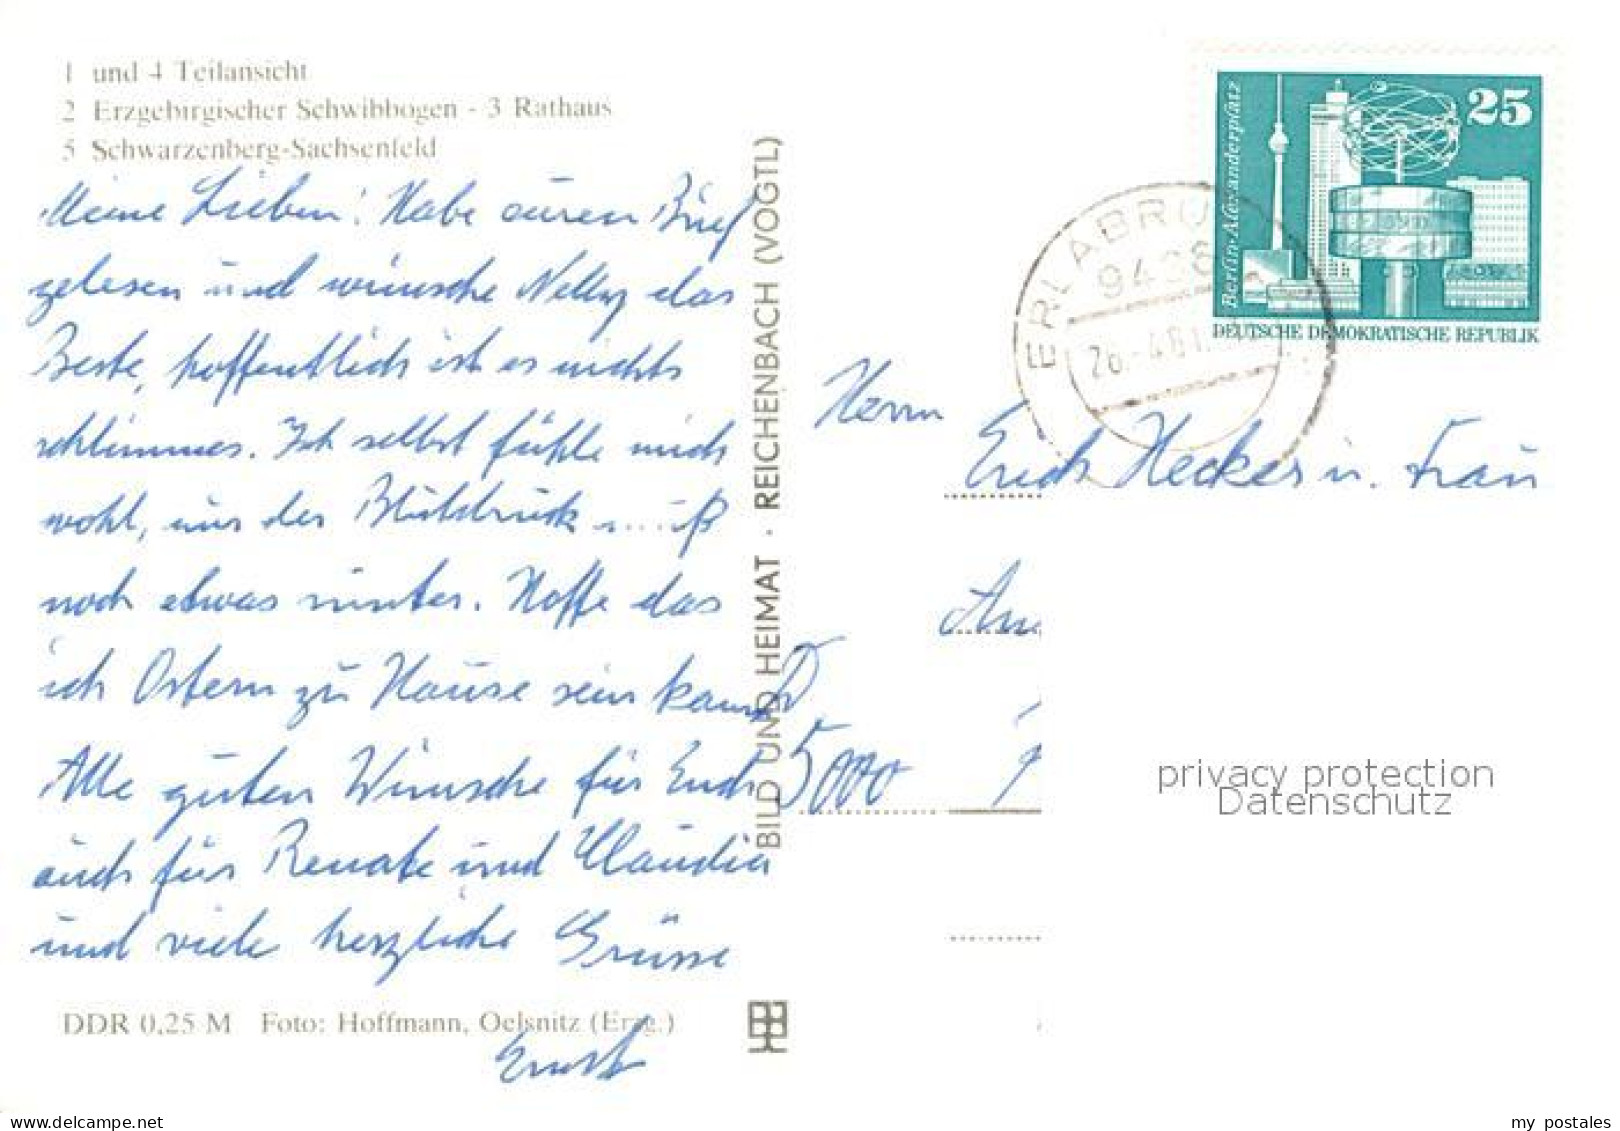 1 und 4 Teilansicht
2 Erzgebirgischer Schwibbogen - 3 Rathaus
5 Schwarzenberg-Sachsenfeld
Meine Lieben! Habe euren Brief
gelesen und wünsche Nelly das
Beste, hoffentlich ist es nichts
schlimmes. Ich selbst fühle mich
wohl, nur der Blutdruck muß
noch etwas runter. Hoffe das
ich Ostern zu Hause sein kann.
Alle guten Wünsche für Euch
auch für Renate und Claudia
und viele herzliche Grüsse
Ernst
DDR 0,25 M Foto: Hoffmann, Oelsnitz (Erzg.)
BILD UND HEIMAT · REICHENBACH (VOGTL)
25
Berlin-Alexanderplatz
DEUTSCHE DEMOKRATISCHE REPUBLIK
ERLABRU
26.-4.81
Herrn
Erich Hecker u. Frau
5000
privacy protection
Datenschutz
my postales
www.delcampe.net